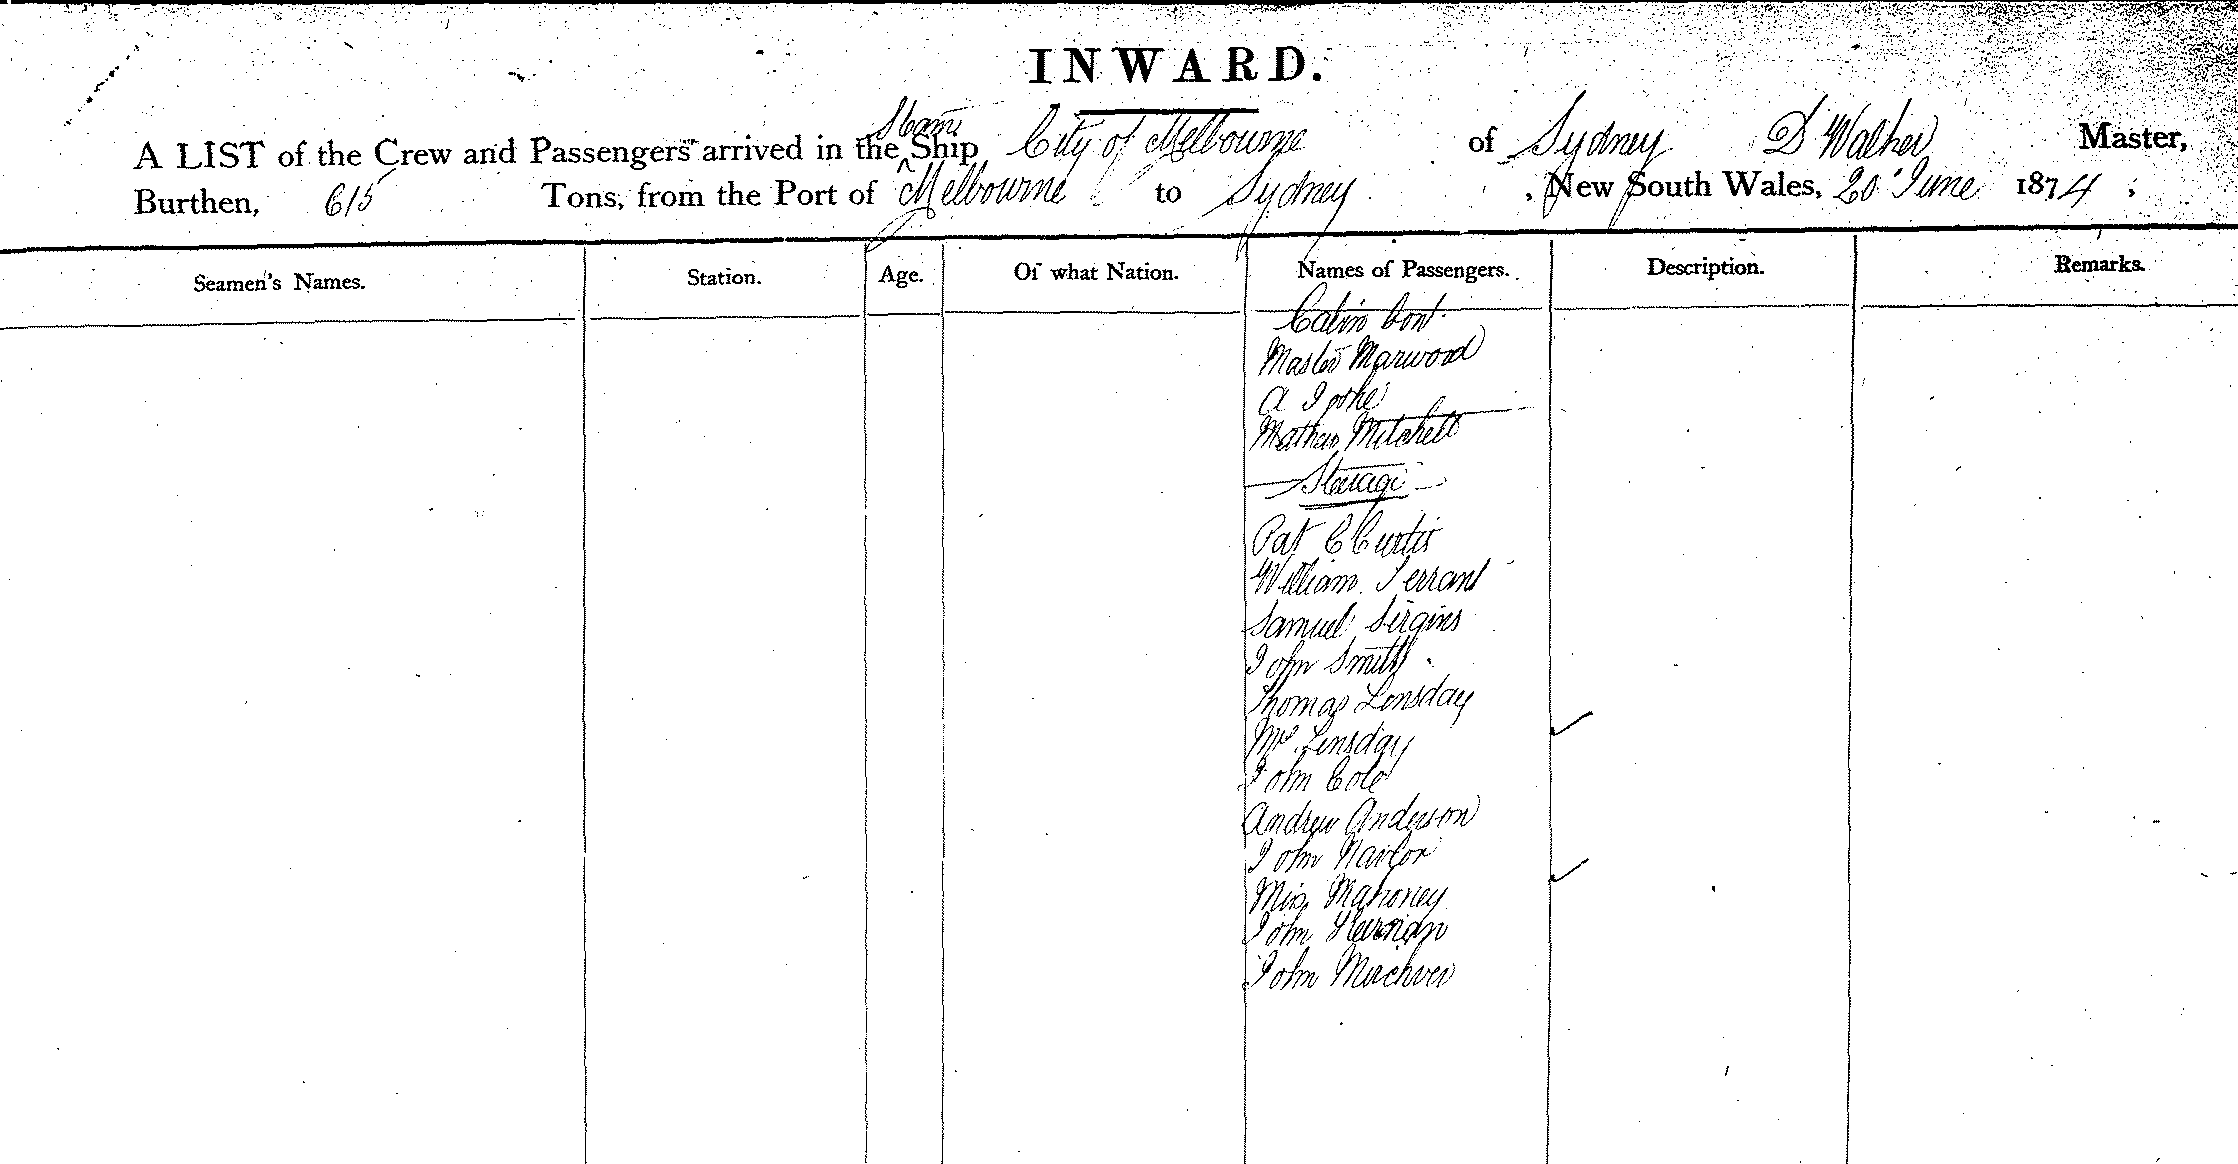 INWARD.
Steam
A LIST of the Crew and Passengers arrived in the Ship City of Melbourne of Sydney D Walker Master,
Burthen, 615 Tons, from the Port of Melbourne to Sydney , New South Wales, 20 June 1874 ;
Seamen's Names. Station. Age. Of what Nation. Names of Passengers. Description. Remarks.
Cabin Cont.
Master Marwood
A
Mitchell
Steerage
Pat C Curtis
William
Samuel
John Smith
Thomas Lonsday
Mrs Linsday
John Cole
Andrew Anderson
John Nailor
Miss Mahoney
John
John